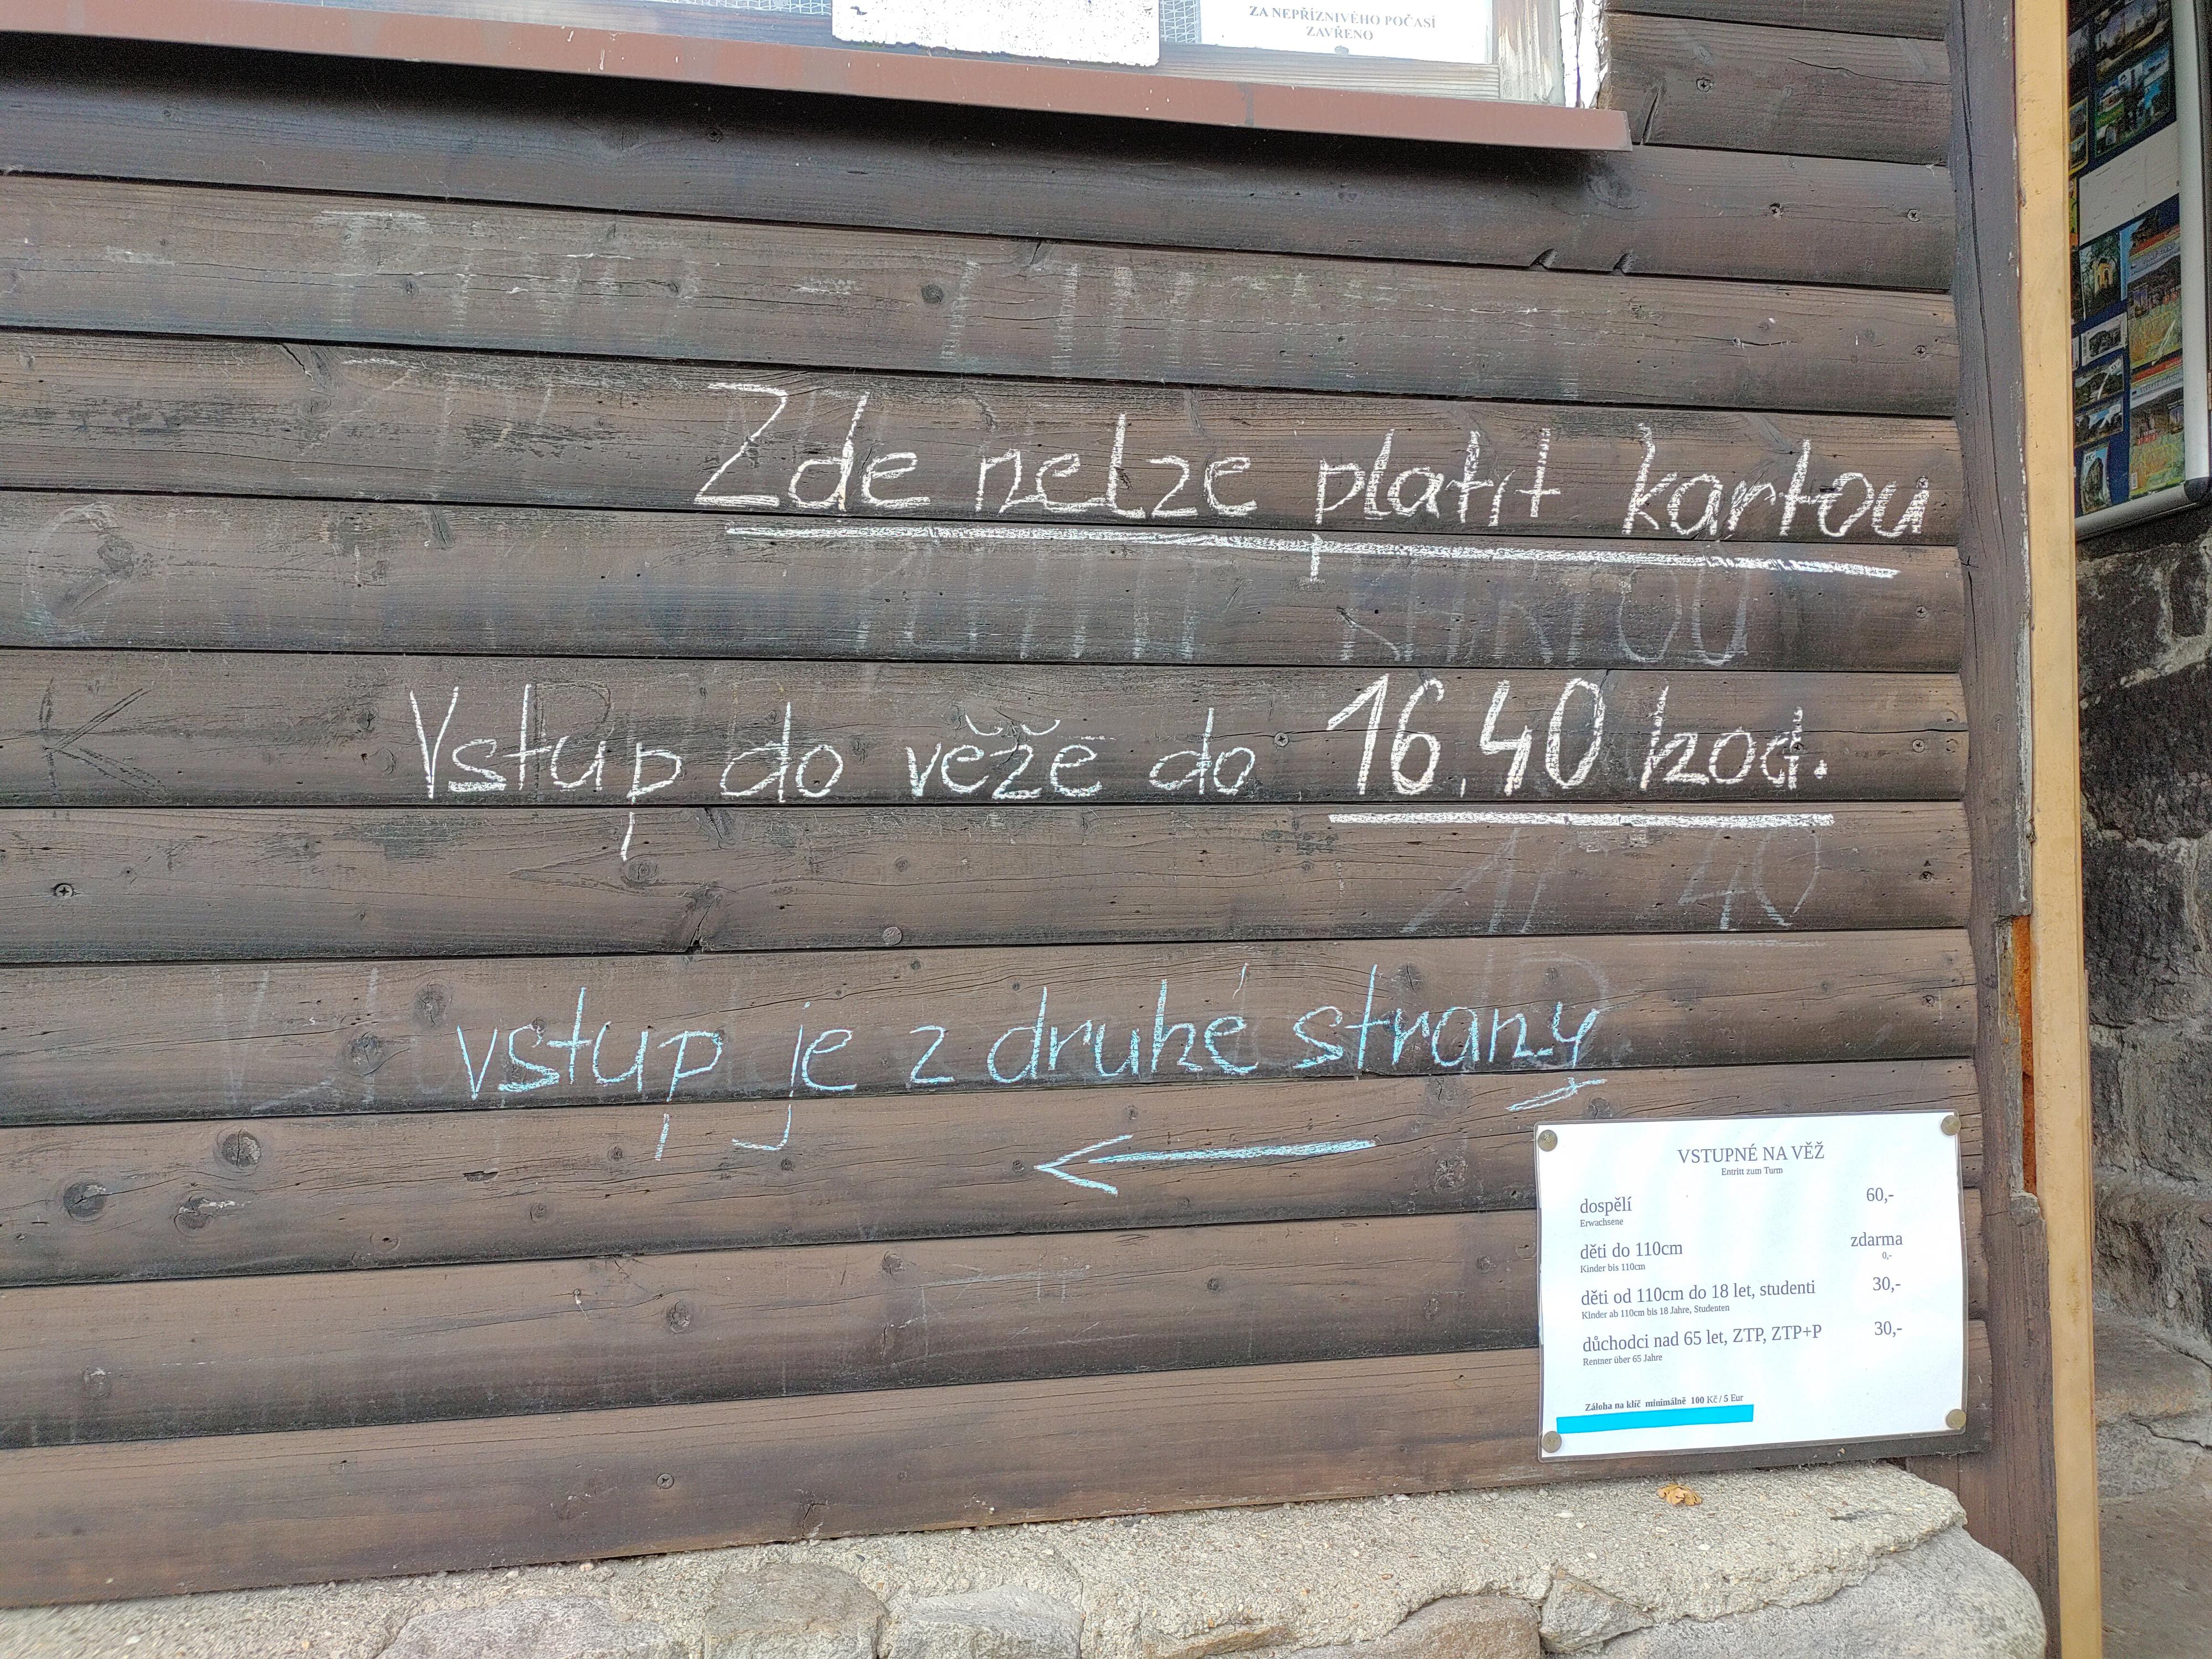 ZA NEPŘÍZNIVÉHO POČASÍ
ZAVŘENO
Zde nelze platit kartou
PLATIT KARTOU
Vstup do věže do 16.40 hod.
40
vstup je z druhé strany
VSTUPNÉ NA VĚŽ
Entritt zum Turm
dospělí 60,-
Erwachsene
děti do 110cm zdarma
Kinder bis 110cm 0,-
děti od 110cm do 18 let, studenti 30,-
KInder ab 110cm bis 18 Jahre, Studenten
důchodci nad 65 let, ZTP, ZTP+P 30,-
Rentner über 65 Jahre
Záloha na klíč minimálně 100 Kč / 5 Eur